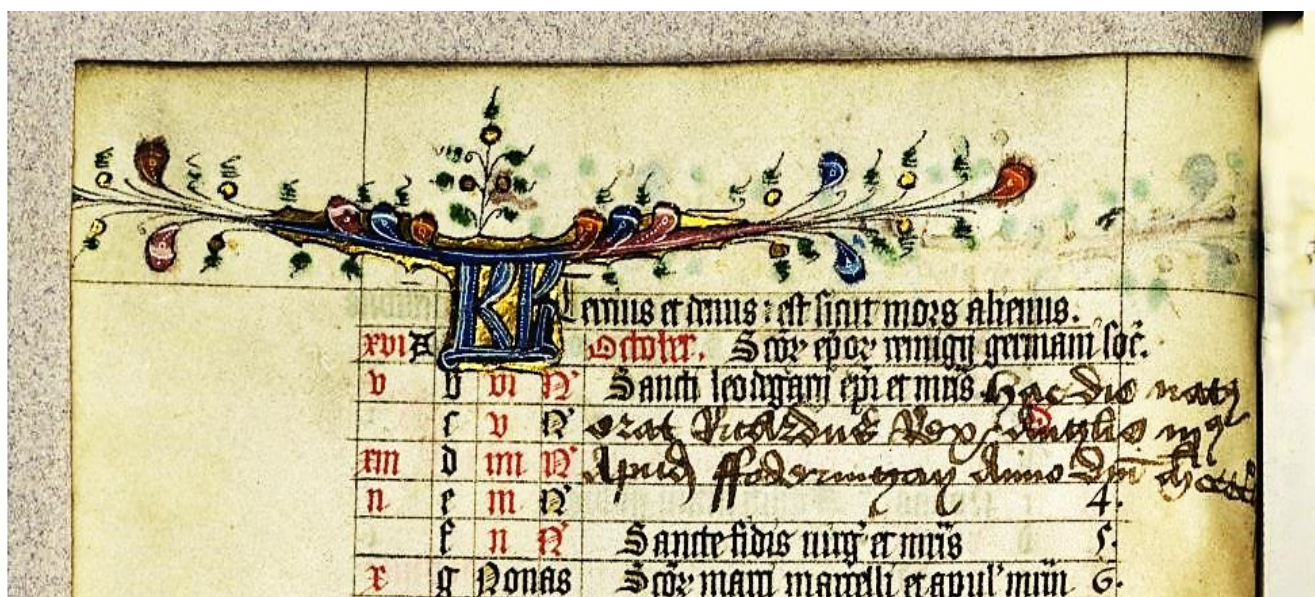 KL Tercius et denus : est sicut mors alienus.
xvi A October. Scõꝝ epõꝝ remigij germani soc̃.
v b vi N' Sancti leodegarij ep̃i et mr̃is hac die nat9
c v N' erat Ricardus Rex Anglie iijus
xiii d iiii N' Apud ffoderingay Anno dñi mcccc
ii e iii N' 4.
f ii N' Sancte fidis uirg' et mr̃is 5.
x g Nonas Scõꝝ marci marcelli et apul' mr̃m 6.